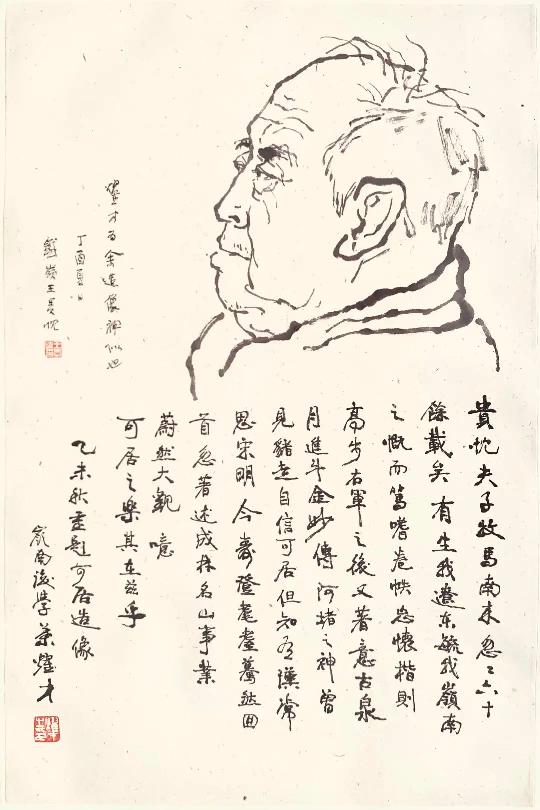 貴忱夫子牧馬南來忽〻六十
餘載矣有生我遼東毓我嶺南
之慨而篤嗜卷帙忠懷楷則
高步右軍之後又著意古泉
月進斗金妙傳阿堵之神曾
見豬走自信可居但知為漢滯
思宋明今壽登耄耋驀然回
首忽著述成林名山事業
蔚然大觀噫
可居之樂其在茲乎
乙未秋畫題可居造像
嶺南後學葉燿才
燿才為余造像神似也
丁酉夏日
鐵嶺王貴忱